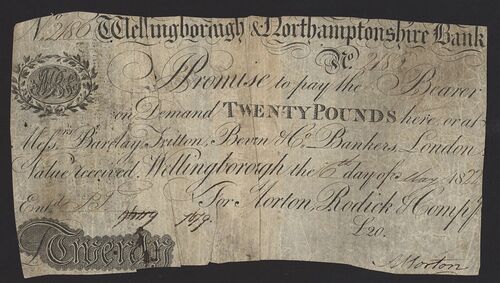 No. 2186 Wellingborough & Northamptonshire Bank
No. 2186
I Promise to pay the Bearer
on Demand TWENTY POUNDS here, or at
Messrs. Barclay Tritton, Bevan & Co. Bankers, London
Value received, Wellingborough the 6th day of May 1822
Entd.
For Morton, Rodick & Compy.
£20.
Twenty
Morton